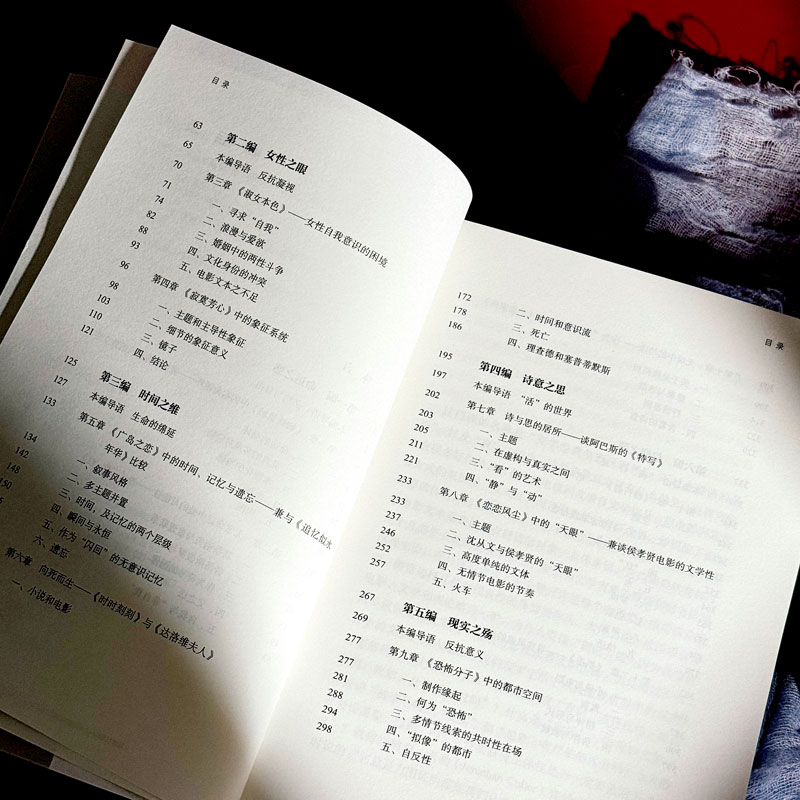 目录
63 第二编 女性之眼
65 本编导语 反抗凝视
70 第三章 《淑女本色》——女性自我意识的困境
71 一、寻求“自我”
74 二、浪漫与爱欲
82 三、婚姻中的两性斗争
88 四、文化身份的冲突
93 五、电影文本之不足
96 第四章 《寂寞芳心》中的象征系统
98 一、主题和主导性象征
103 二、细节的象征意义
110 三、镜子
121 四、结论
125 第三编 时间之维
127 本编导语 生命的绵延
133 第五章 《广岛之恋》中的时间、记忆与遗忘——兼与《追忆似水
年华》比较
134 一、叙事风格
142 二、多主题并置
148 三、时间、及记忆的两个层级
150 四、瞬间与永恒
五、作为“闪回”的无意识记忆
六、遗忘
第六章 向死而生——《时时刻刻》与《达洛维夫人》
一、小说和电影
目录
172 二、时间和意识流
178 三、死亡
186 四、理查德和塞普蒂默斯
195 第四编 诗意之思
197 本编导语 “活”的世界
202 第七章 诗与思的居所——谈阿巴斯的《特写》
203 一、主题
205 二、在虚构与真实之间
211 三、“看”的艺术
221 四、“静”与“动”
233 第八章 《恋恋风尘》中的“天眼”——兼谈侯孝贤电影的文学性
233 一、主题
237 二、沈从文与侯孝贤的“天眼”
246 三、高度单纯的文体
252 四、无情节电影的节奏
257 五、火车
267 第五编 现实之殇
269 本编导语 反抗意义
277 第九章 《恐怖分子》中的都市空间
277 一、制作缘起
281 二、何为“恐怖”
288 三、多情节线索的共时性在场
294 四、“拟像”的都市
298 五、自反性